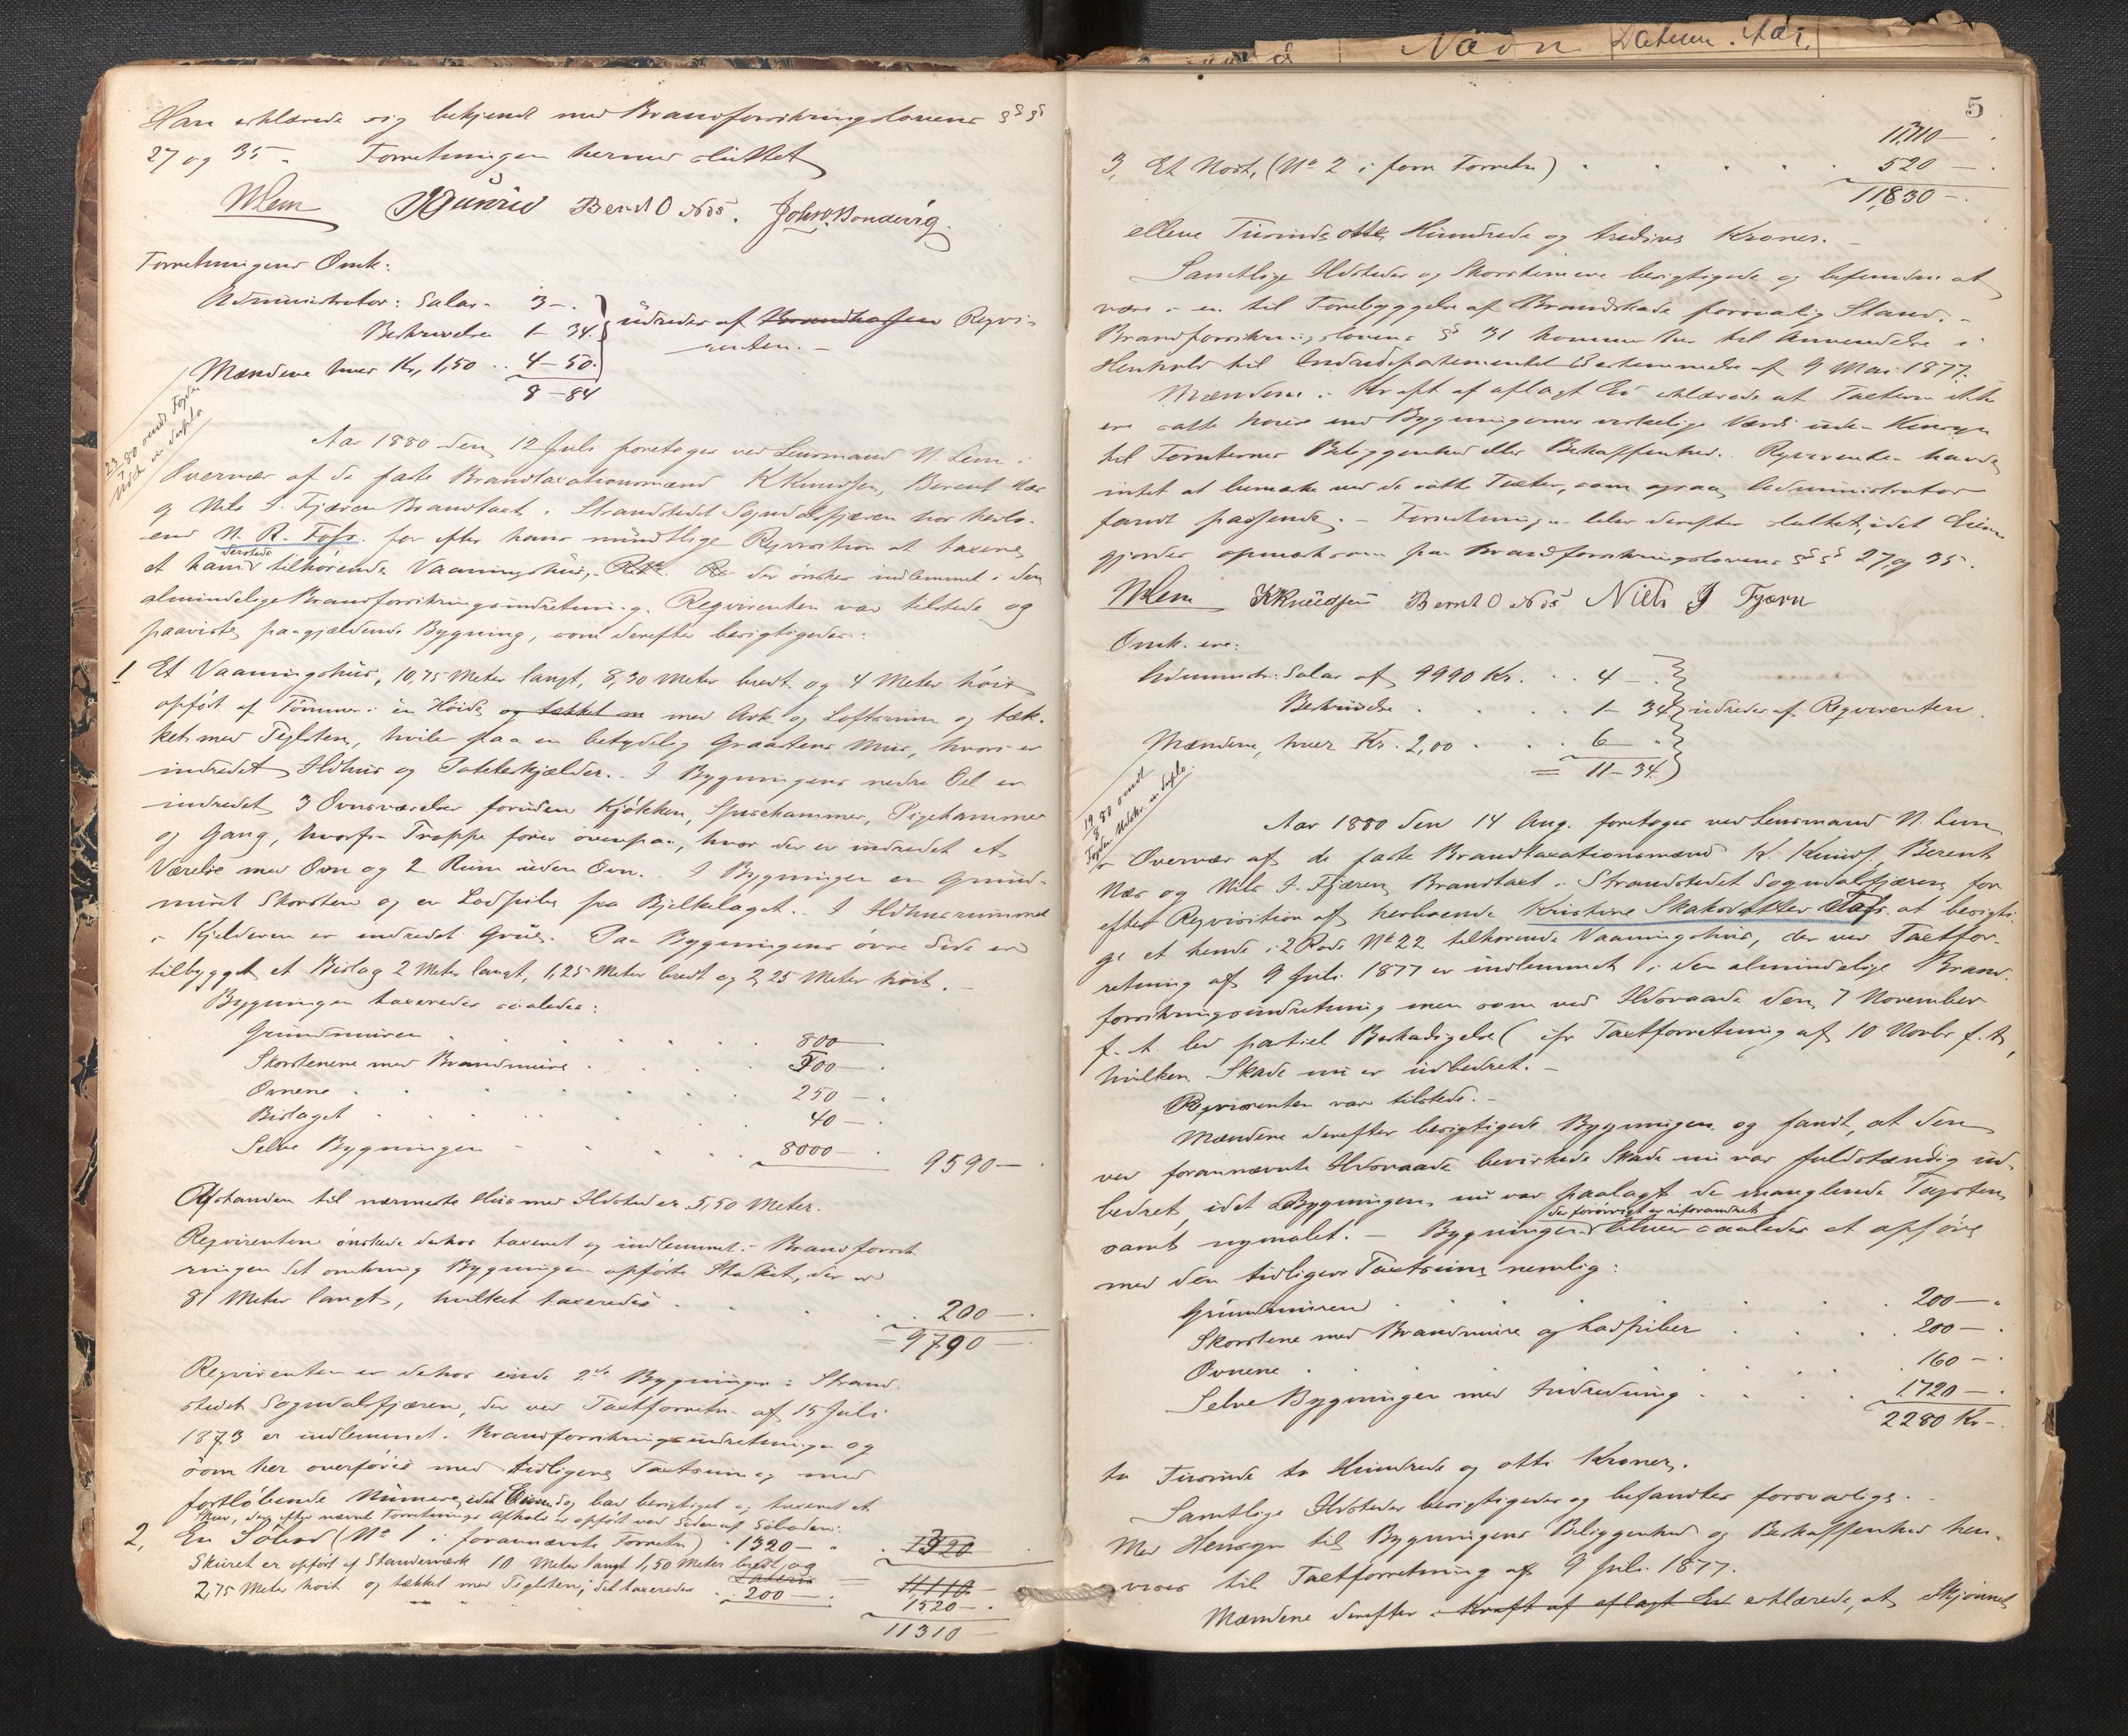 Han erklærede sig bekjendt med Brandforsikringslovens §§§
27 og 35. Forretningen hermed sluttet
NLem Bernt O Næs. Johs. Sonderig.
Forretningens Omk:
Administrator: Salar. 3 -.
Beskrivelse 1 - 34. udredes af Brandkassen Reqvi-
renten. -
Mændene hver Kr, 1,50 .. 4 - 50.
8 - 84
23/7 80 sendt Fogden
Udsk. in duplo
Aar 1880 den 12 Juli foretoges ved Lensmand N. Lem i
Overvær af de faste Brandtaxationsmænd K Knudsen, Berent Næs
og Nils I. Fjæren Brandtaxt i Strandstedet Sogndalsfjæren hos herbo-
ende N. R. Foss. for efter hans mundtlige Reqvisition at taxere
et ham dersteds tilhörende Vaaningshus, der önskes indlemmet i den
almindelige Brandforsikringsindretning. Reqvirenten var tilstede og
paaviste paagjældende Bygning, som derefter besigtigedes:
1 Et Vaaningshus, 10,75 Meter langt, 8,30 Meter bredt og 4 Meter höit
opfört af Tömmer i en Höide og tækket m med Ark og Loftsrum og tæk-
ket med Teglsten, hviler paa en betydelig Graastens Mur, hvori er
indredet Ildhus og Potetkjælder. - I Bygningens nedre Del er
indredet 3 Ovnsværelser foruden Kjökken, Spisekammer, Pigekammer
og Gang, hvorfra Trappe förer ovenpaa, hvor der er indredet et
Værelse med Ovn og 2 Rum uden Ovn. - I Bygningen en Grund-
muret Skorsten og en Lodpibe paa Bjelkelaget. - I Ildhusrummet
i Kjelderen er indredet Grue. Paa Bygningens övre Side er
tilbygget et Bislag 2 Meter langt, 1,25 Meter bredt og 2,25 Meter höit. -
Bygningen taxeredes saaledes:
Grundmuren 800 -
Skorstenene med Brandmure 500 - .
Ovnene 250 - .
Bislaget 40 - .
Selve Bygningen 8000 - . 9590 - .
Afstanden til nærmeste Hus med Ildsted er 5,50 Meter.
Reqvirenten önskede derhos taxeret og indlemmet i Brandforsik
ringen det omkring Bygningen opförte Stakket, der er
81 Meter langt, hvilket taxeredes 200 - .
= 9790 - .
Reqvirenten er derhos eiende 2de Bygninger i Strand
stedet Sogndalsfjæren, der ved Taxtforretn. af 15 Juli
1873 er indlemmet i Brandforsikringsindretningen og
som her overföres med tidligere Taxtsum og med
fortlöbende Numere, idet Eieren dog bad besigtiget og taxeret et
Skur, der efter nævnte Forretnings Afholdelse er opfört ved Siden af Söboden:
2, En Söbod (No 1 i forannævnte Forretn) 1320 - . 1320
Skuret er opfört af Standerværk 10 Meter langt 1,50 Meter bredt, og
2,75 Meter höit og tækket med Teglsten, det taxeredes 200 - . 11,110 -
1520 - .
11310 -
5
11,310 - .
3, Et Nöst, (No 2 i förn Forretn) 520 - .
11,830 - .
elleve Tusinde otte Hundrede og tredive Kroner. -
Samtlige Ildsteder og Skorstenene besigtigede og befundne at
være i en til Forebyggelse af Brandskade forsvarlig Stand. -
Brandforsikringslovens § 31 kommer her til Anvendelse i
Henhold til Indredepartementets Bestemmelse af 9 Mai 1877.
Mændene i Kraft af aflagt Ed erklærede at Taxterne ikke
ere satte höiere end Bygningernes virkelige Værdi uden Hensyn
til Tomternes Beliggenhed eller Beskaffenhed. Reqvirenten havde
intet at bemærke ved de satte Taxter, som ogsaa Administrator
fandt passende. - Forretningen blev derefter sluttet, idet Eieren
gjordes opmærksom paa Brandforsikringslovens §§ 27 og 35.
NLem KKnudsen Bernt O Næs Niels J Fjæren
Omk. ere:
Administr: Salar af 9990 Kr. .. 4 - .
Beskrivelse 1 - 34 udredes af Reqvirenten.
Mændene, hver Kr. 2,00 6 - .
= 11 - 34.
19/8 80 sendt
Fogden Udskr. in duplo.
Aar 1880 den 14 Aug. foretoges ved Lensmand N. Lem
i Overvær af de faste Brandtaxationsmænd K. Knuds. Berent
Næs og Nils I. Fjæren, Brandtaxt i Strandstedet Sogndalsfjæren, for
efter Reqvisition af herboende Kristine Skaksdatter at besigti-
ge et hende i 2 Rode No 22 tilhörende Vaaningshus, der ved Taxtfor-
retning af 9 Juli 1877 er indlemmet i den almindelige Brand-
forsikringsindretning men som ved Ildsvaade den 7 November
f. A. led partiel Beskadigelse (cfr Taxtforretning af 10 Novbr f. A,
hvilken Skade nu er udbedret. -
Reqvirenten var tilstede. -
Mændene derefter besigtigede Bygningen og fandt, at den
ved forannævnte Ildsvaade bevirkede Skade nu var fuldstændig ud-
bedret, idet Bygningen nu var paalagt de manglende Tagsten,
samt nymalet. - Bygningen der forövrigt er uforandret bliver saaledes at opföre
med den tidligere Taxtsum, nemlig:
Grundmuren 200 - .
Skorstene med Brandmure og Ladpiber 200 - .
Ovnene 160 - .
Selve Bygningen med Indredning 1720 - .
2280 Kr. - .
to Tusinde to Hundrede og otti Kroner.
Samtlige Ildsteder besigtigedes og befandtes forsvarlige. -
Med Hensyn til Bygningens Beliggenhed og Beskaffenhed hen-
vises til Taxtforretning af 9 Juli 1877.
Mændene derefter i Kraft af aflagt Ed erklærede, at Skjönnet
Navn Datum. Aar.